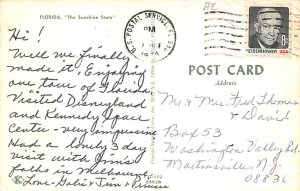 FLORIDA, "The Sunshine State"
Hi!
Well we finally
made it, Enjoying
our tour of Florida
Visited Disneyland
and Kennedy Space
Center - very impressive
Had a lovely 3 day
visit with Jimmie
folks in Melbourne.
Love - Gabie & Tim &
U.S. POSTAL SERVICE, FL
PM
EISENHOWER USA
8c
POST CARD
Address
Mr & Mrs. Fred Thomas
& David
Box 53
Washington Valley Rd
Martinsville, N.J.
08836